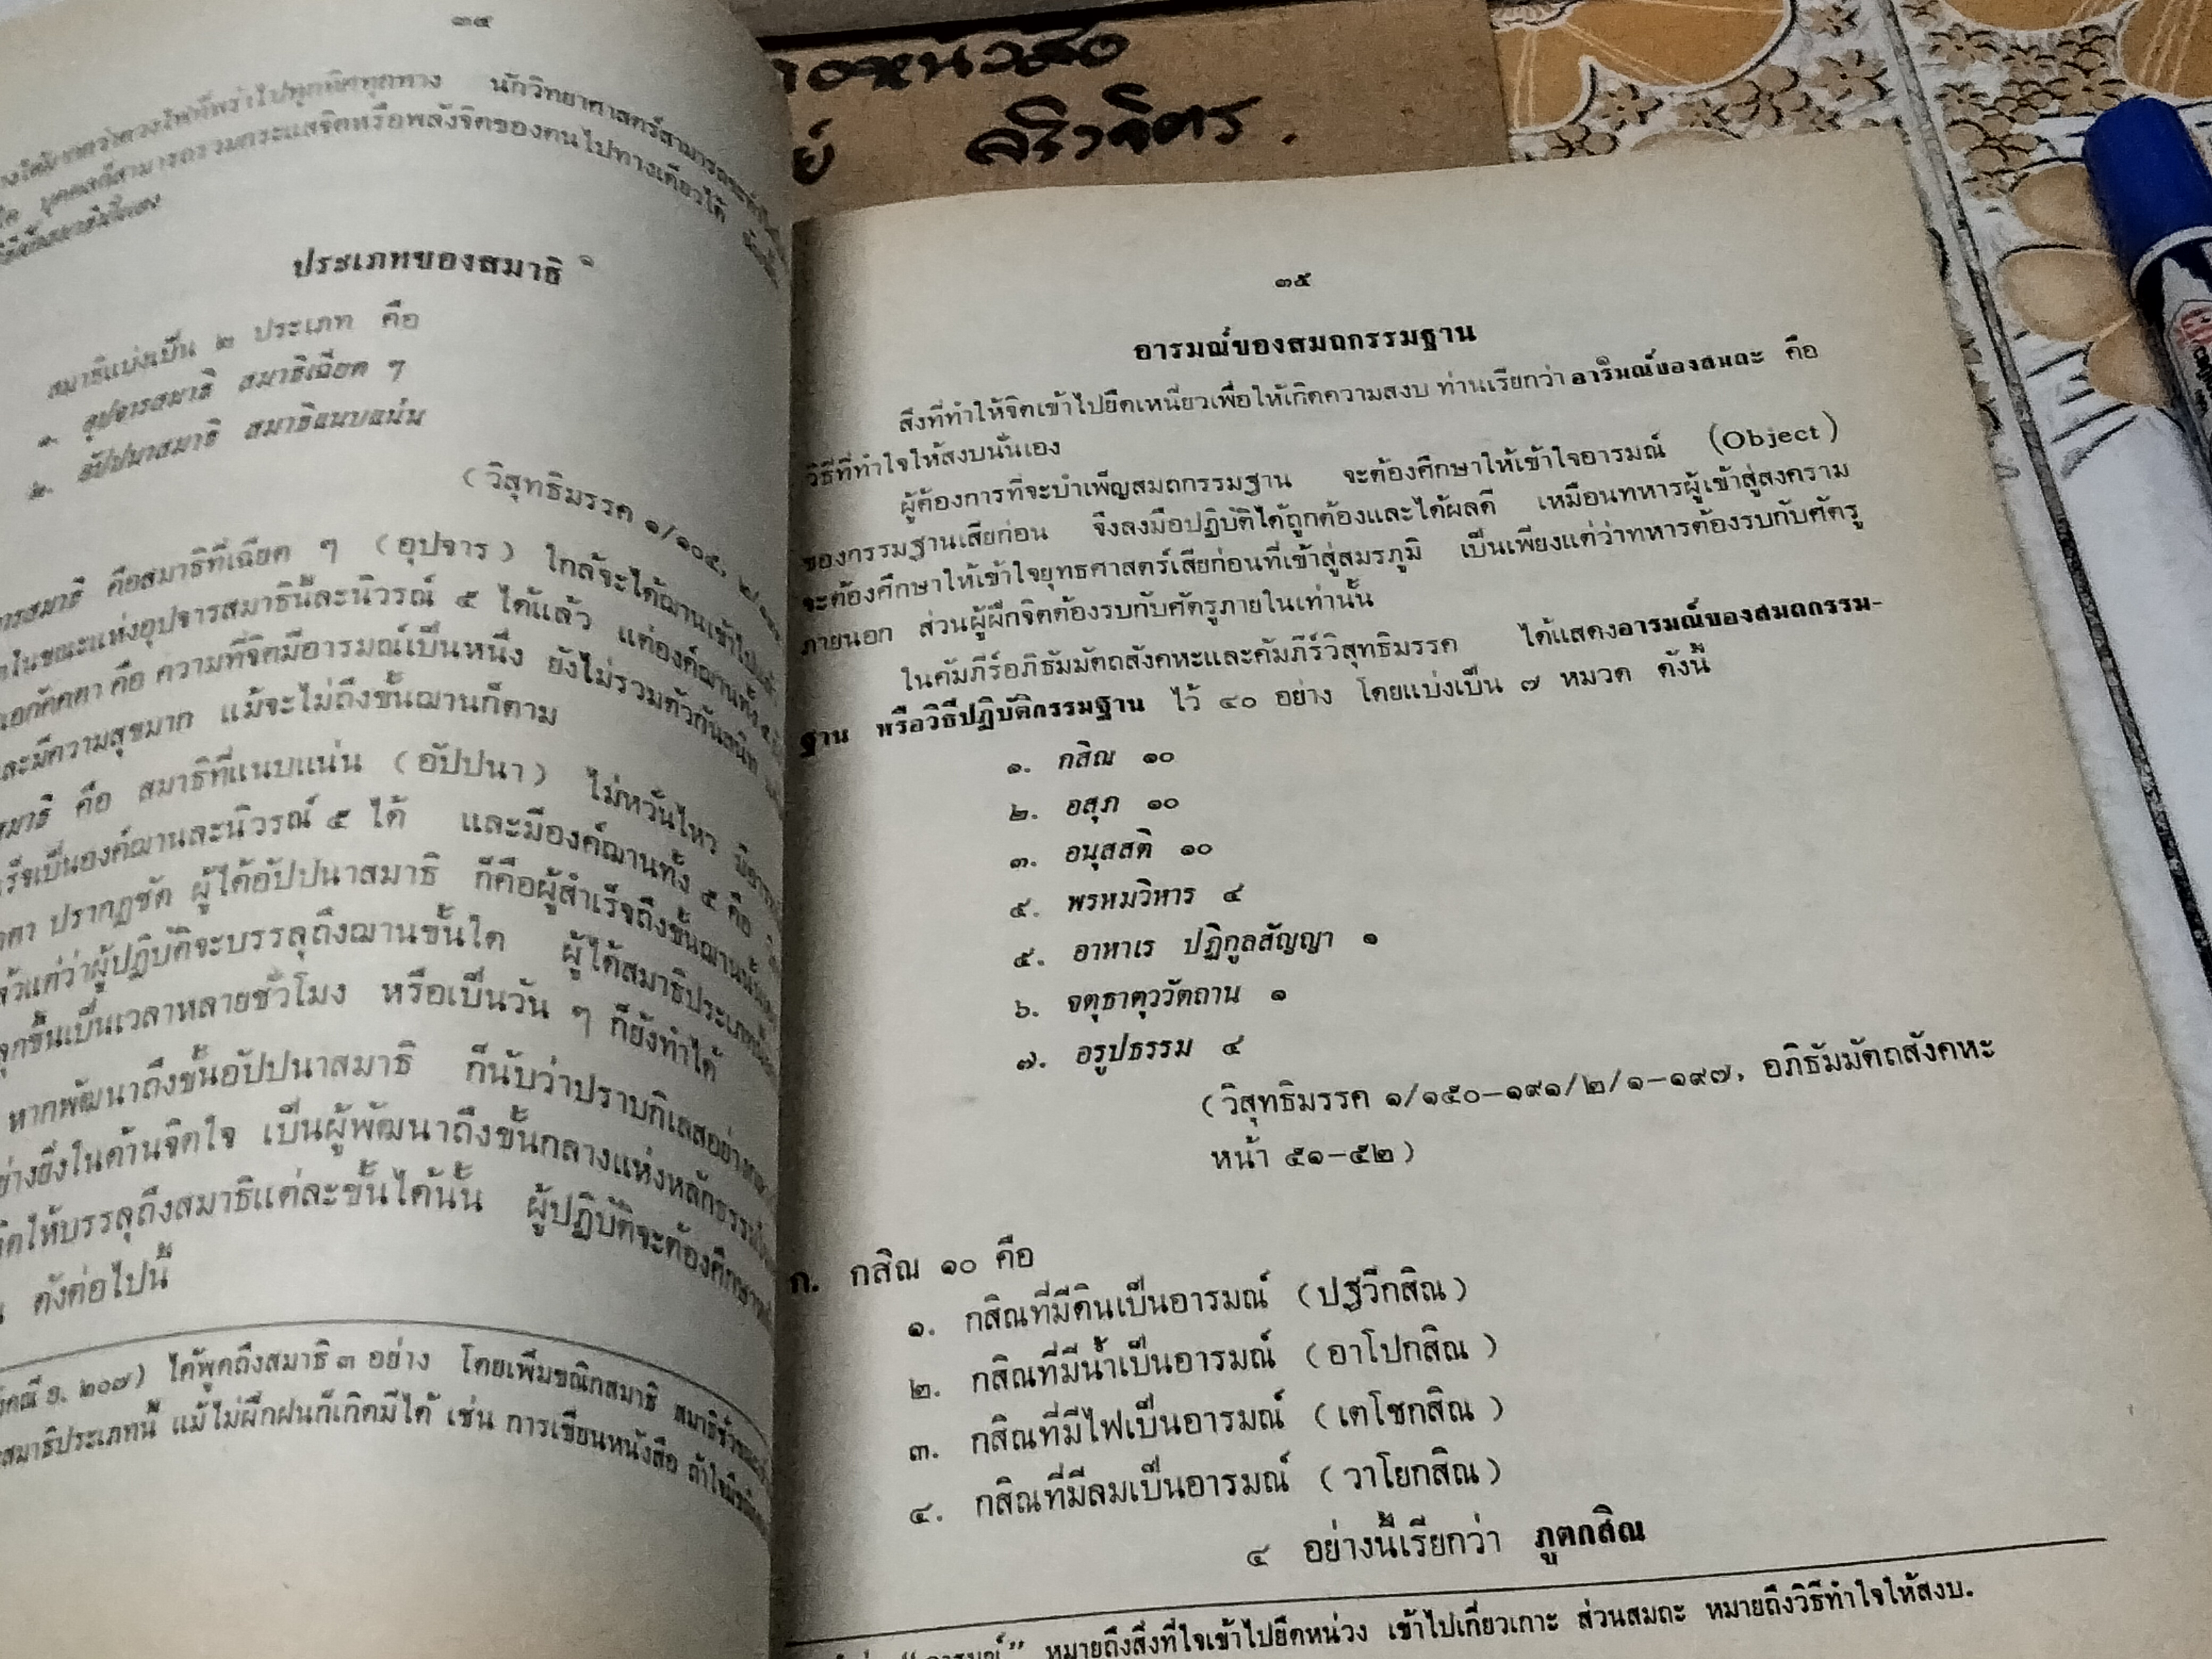 ๓๔
นักวิทยาศาสตร์สามารถ
บุคคลก็สามารถรวมกระแสจิตหรือพลังจิตของตนไปทางเดียวได้
ประเภทของสมาธิ ๑
สมาธิแบ่งเป็น ๒ ประเภท คือ
๑. อุปจารสมาธิ สมาธิเฉียด ๆ
๒. อัปปนาสมาธิ สมาธิแนบแน่น
(วิสุทธิมรรค ๑/๑๐๕, ๒/
คือสมาธิที่เฉียด ๆ (อุปจาร) ใกล้จะได้ฌานเข้าไปแล้ว
ในขณะแห่งอุปจารสมาธินี้ละนิวรณ์ ๕ ได้แล้ว แต่องค์ฌานทั้ง ๕
เอกัคคตา คือ ความที่จิตมีอารมณ์เป็นหนึ่ง ยังไม่รวมตัวกันสนิท
และมีความสุขมาก แม้จะไม่ถึงขั้นฌานก็ตาม
คือ สมาธิที่แนบแน่น (อัปปนา) ไม่หวั่นไหว
เป็นองค์ฌานละนิวรณ์ ๕ ได้ และมีองค์ฌานทั้ง ๕ คือ
ปรากฏชัด ผู้ได้อัปปนาสมาธิ ก็คือผู้สำเร็จถึงขั้นฌานนั้นเอง
แต่ว่าผู้ปฏิบัติจะบรรลุถึงฌานขั้นใด ผู้ได้สมาธิประเภทนี้
ลุกขึ้นเป็นเวลาหลายชั่วโมง หรือเป็นวัน ๆ ก็ยังทำได้
หากพัฒนาถึงขั้นอัปปนาสมาธิ ก็นับว่าปราบกิเลสอย่าง
อย่างยิ่งในด้านจิตใจ เป็นผู้พัฒนาถึงขั้นกลางแห่งหลักธรรม
จิตให้บรรลุถึงสมาธิแต่ละขั้นได้นั้น ผู้ปฏิบัติจะต้องศึกษา
ดังต่อไปนี้
๒๐๗) ได้พูดถึงสมาธิ ๓ อย่าง โดยเพิ่มขณิกสมาธิ สมาธิชั่วขณะ
สมาธิประเภทนี้ แม้ไม่ฝึกฝนก็เกิดมีได้ เช่น การเขียนหนังสือ ถ้าใจ
ศริวจิตร.
๓๕
อารมณ์ของสมถกรรมฐาน
สิ่งที่ทำให้จิตเข้าไปยึดเหนี่ยวเพื่อให้เกิดความสงบ ท่านเรียกว่า อารมณ์ของสมถะ คือ
วิธีที่ทำใจให้สงบนั่นเอง
ผู้ต้องการที่จะบำเพ็ญสมถกรรมฐาน จะต้องศึกษาให้เข้าใจอารมณ์ (Object)
ของกรรมฐานเสียก่อน จึงลงมือปฏิบัติได้ถูกต้องและได้ผลดี เหมือนทหารผู้เข้าสู่สงคราม
จะต้องศึกษาให้เข้าใจยุทธศาสตร์เสียก่อนที่เข้าสู่สมรภูมิ เป็นเพียงแต่ว่าทหารต้องรบกับศัตรู
ภายนอก ส่วนผู้ฝึกจิตต้องรบกับศัตรูภายในเท่านั้น
ในคัมภีร์อภิธัมมัตถสังคหะและคัมภีร์วิสุทธิมรรค ได้แสดงอารมณ์ของสมถกรรม-
ฐาน หรือวิธีปฏิบัติกรรมฐาน ไว้ ๔๐ อย่าง โดยแบ่งเป็น ๗ หมวด ดังนี้
๑. กสิณ ๑๐
๒. อสุภ ๑๐
๓. อนุสสติ ๑๐
๔. พรหมวิหาร ๔
๕. อาหาเร ปฏิกูลสัญญา ๑
๖. จตุธาตุววัตถาน ๑
๗. อรูปธรรม ๔
(วิสุทธิมรรค ๑/๑๕๐-๑๙๑/๒/๑-๑๙๗, อภิธัมมัตถสังคหะ
หน้า ๕๑-๕๒)
ก. กสิณ ๑๐ คือ
๑. กสิณที่มีดินเป็นอารมณ์ (ปฐวีกสิณ)
๒. กสิณที่มีน้ำเป็นอารมณ์ (อาโปกสิณ)
๓. กสิณที่มีไฟเป็นอารมณ์ (เตโชกสิณ)
๔. กสิณที่มีลมเป็นอารมณ์ (วาโยกสิณ)
๔ อย่างนี้เรียกว่า ภูตกสิณ
"อารมณ์" หมายถึงสิ่งที่ใจเข้าไปยึดหน่วง เข้าไปเกี่ยวเกาะ ส่วนสมถะ หมายถึงวิธีทำใจให้สงบ.